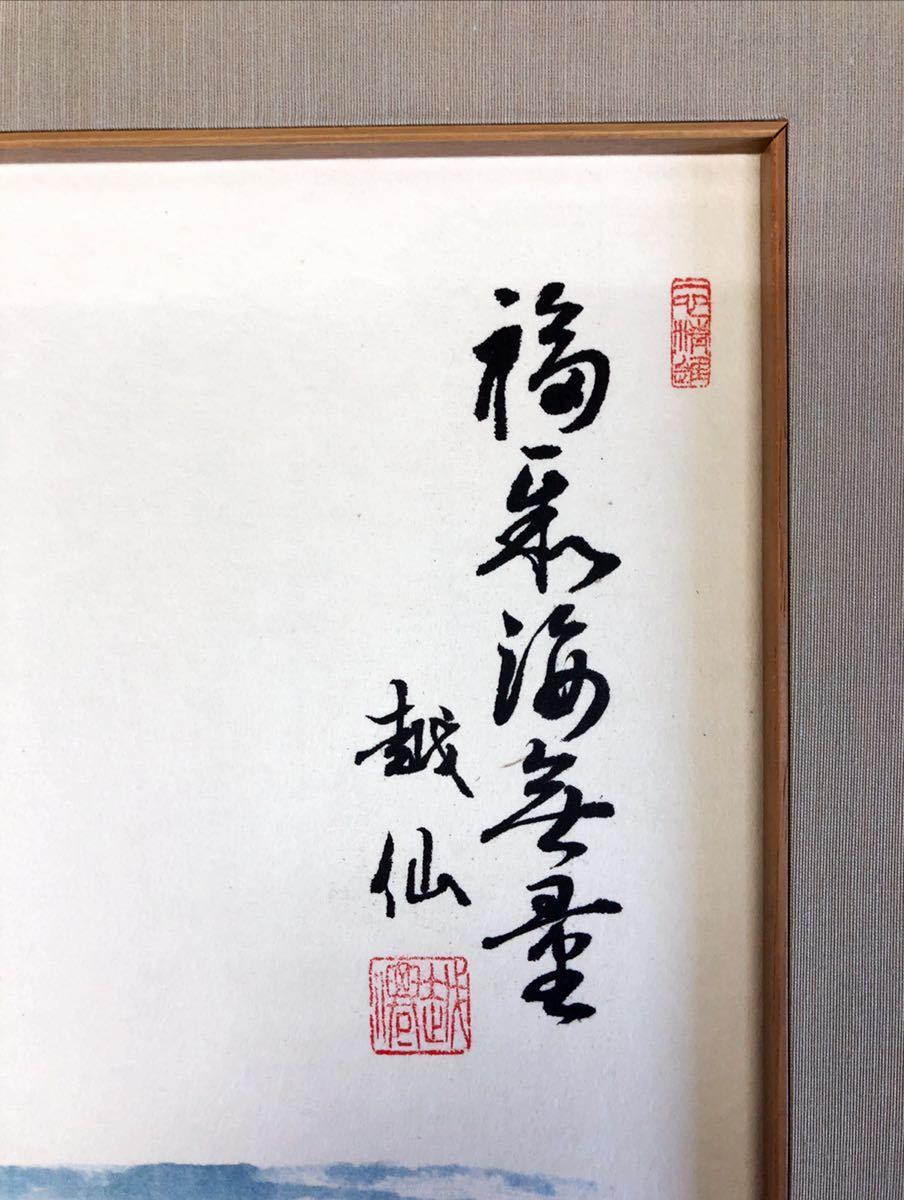 福聚海無量
越仙